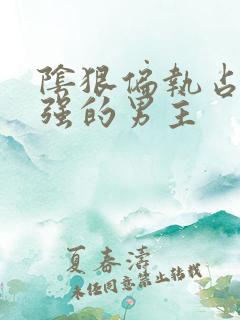 陰狠偏執占
强的男主
夏春濤
未经同意禁止转载